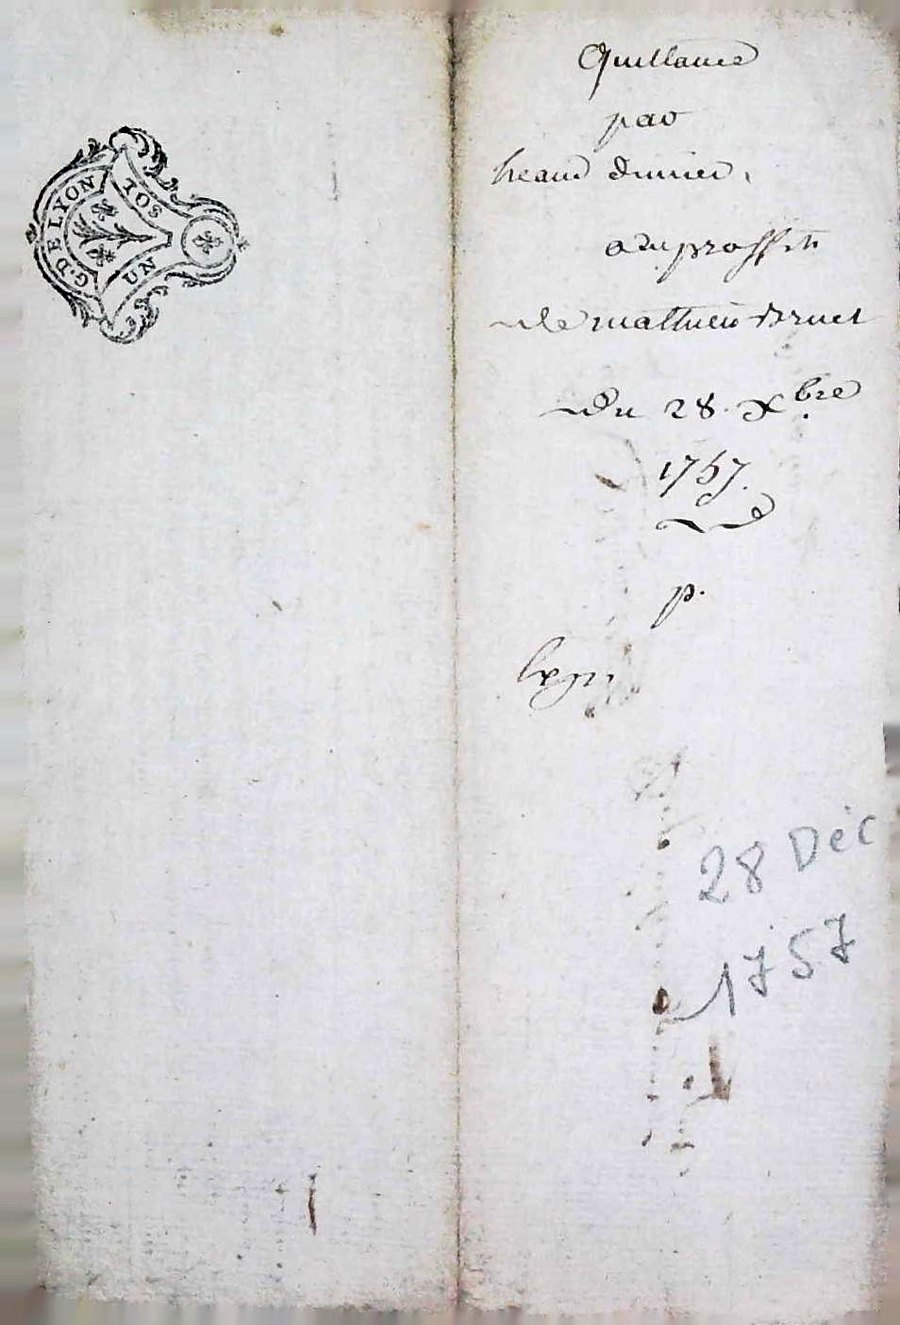 G. DE LYON
UN SOL
Quittance
par
au proffit
de mathieu Bruet
Du 28. Xbre
1757.
p.
28 Déc
1757